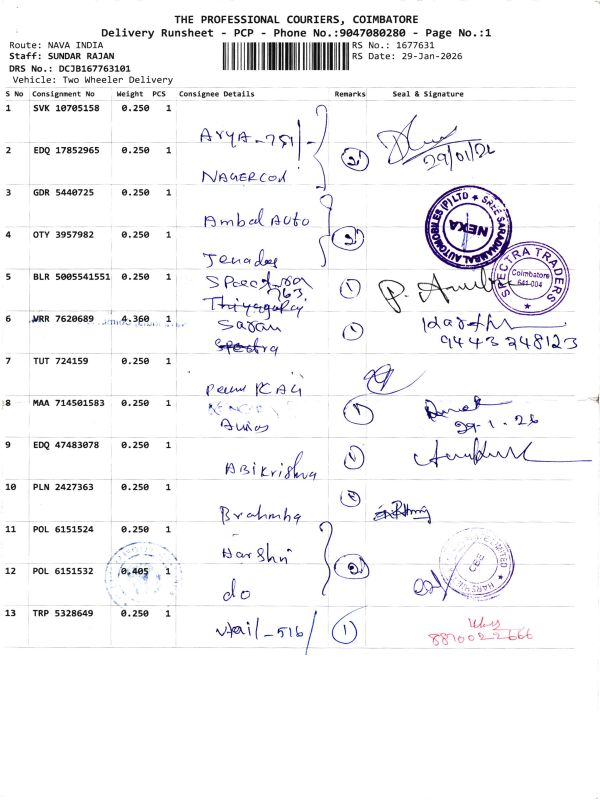 THE PROFESSIONAL COURIERS, COIMBATORE
Delivery Runsheet - PCP - Phone No.:9047080280 - Page No.:1
Route: NAVA INDIA
Staff: SUNDAR RAJAN
DRS No.: DCJB167763101
Vehicle: Two Wheeler Delivery
RS No.: 1677631
RS Date: 29-Jan-2026
S No Consignment No Weight PCS Consignee Details Remarks Seal & Signature
1 SVK 10705158 0.250 1
Arya-751/-
2 EDQ 17852965 0.250 1
2
29/01/26
3 GDR 5440725 0.250 1
Ambal Auto
4 OTY 3957982 0.250 1
2
SREE SARADHAMBAL AUTOMOBILES (P) LTD
NEXA
5 BLR 5005541551 0.250 1
1
763
Thiyagaraj
SPECTRA TRADERS
Coimbatore
641-004
6 WRR 7620689 4.360 1
Saran
Spectra
1
Karthi
9443248123
7 TUT 724159 0.250 1
8 MAA 714501583 0.250 1
1
29-1-26
9 EDQ 47483078 0.250 1
Abikrishna
1
10 PLN 2427363 0.250 1
Brahmha
11 POL 6151524 0.250 1
Harshni
2
12 POL 6151532 0.405 1
do
CBE
13 TRP 5328649 0.250 1
-516/
1
8870022666